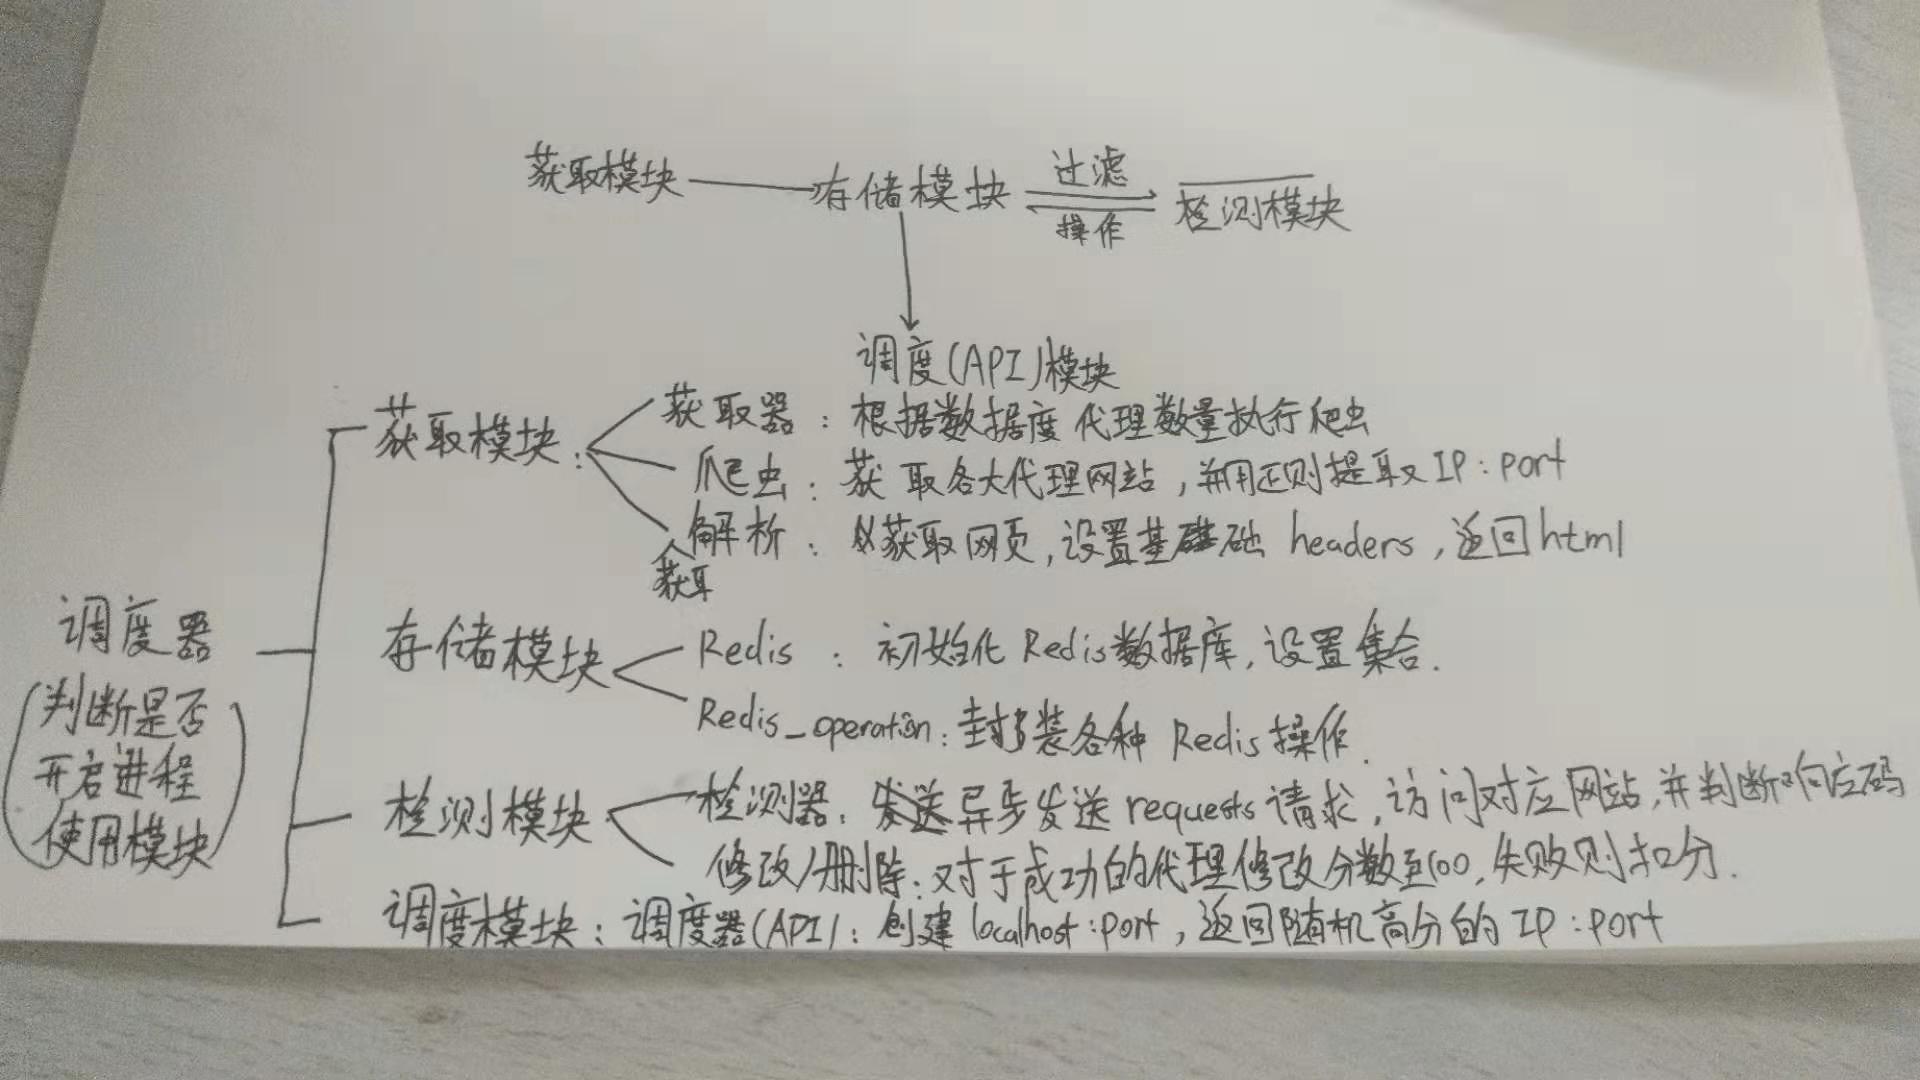 获取模块 存储模块 过滤 检测模块
操作
调度(API)模块
获取模块: 获取器: 根据数据度代理数量执行爬虫
爬虫: 获取各大代理网站,并用正则提取IP:port
解析: 获取网页,设置基础 headers,返回html
获取
调度器
(判断是否
开启进程
使用模块)
存储模块 Redis : 初始化 Redis数据库,设置集合.
Redis_operation: 封装各种 Redis操作.
检测模块 检测器: 异步发送 requests 请求,访问对应网站,并判断响应码
修改/删除: 对于成功的代理修改分数至100,失败则扣分.
调度模块: 调度器(API): 创建 localhost:port,返回随机高分的 IP:port